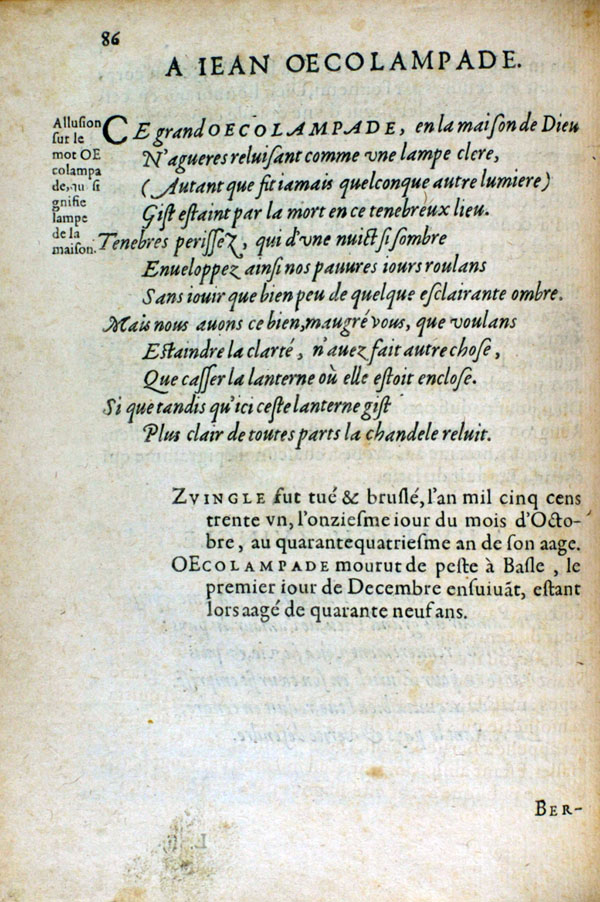 86
A IEAN OECOLAMPADE.
Allusion
sur le
mot OE
colampa
de, qu si
gnifie
lampe
de la
maison.
CE grand OECOLAMPADE, en la maison de Dieu
N'agueres reluisant comme vne lampe clere,
(Autant que fit iamais quelconque autre lumiere)
Gist estaint par la mort en ce tenebreux lieu.
Tenebres perissez, qui d'vne nuict si sombre
Enueloppez ainsi nos pauures iours roulans
Sans iouir que bien peu de quelque esclairante ombre.
Mais nous auons ce bien, maugré vous, que voulans
Estaindre la clarté, n'auez fait autre chose,
Que casser la lanterne où elle estoit enclose.
Si que tandis qu'ici ceste lanterne gist
Plus clair de toutes parts la chandele reluit.
ZVINGLE fut tué & bruslé, l'an mil cinq cens
trente vn, l'onziesme iour du mois d'Octo-
bre, au quarantequatriesme an de son aage.
OECOLAMPADE mourut de peste à Basle, le
premier iour de Decembre ensuiuãt, estant
lors aagé de quarante neuf ans.
BER-